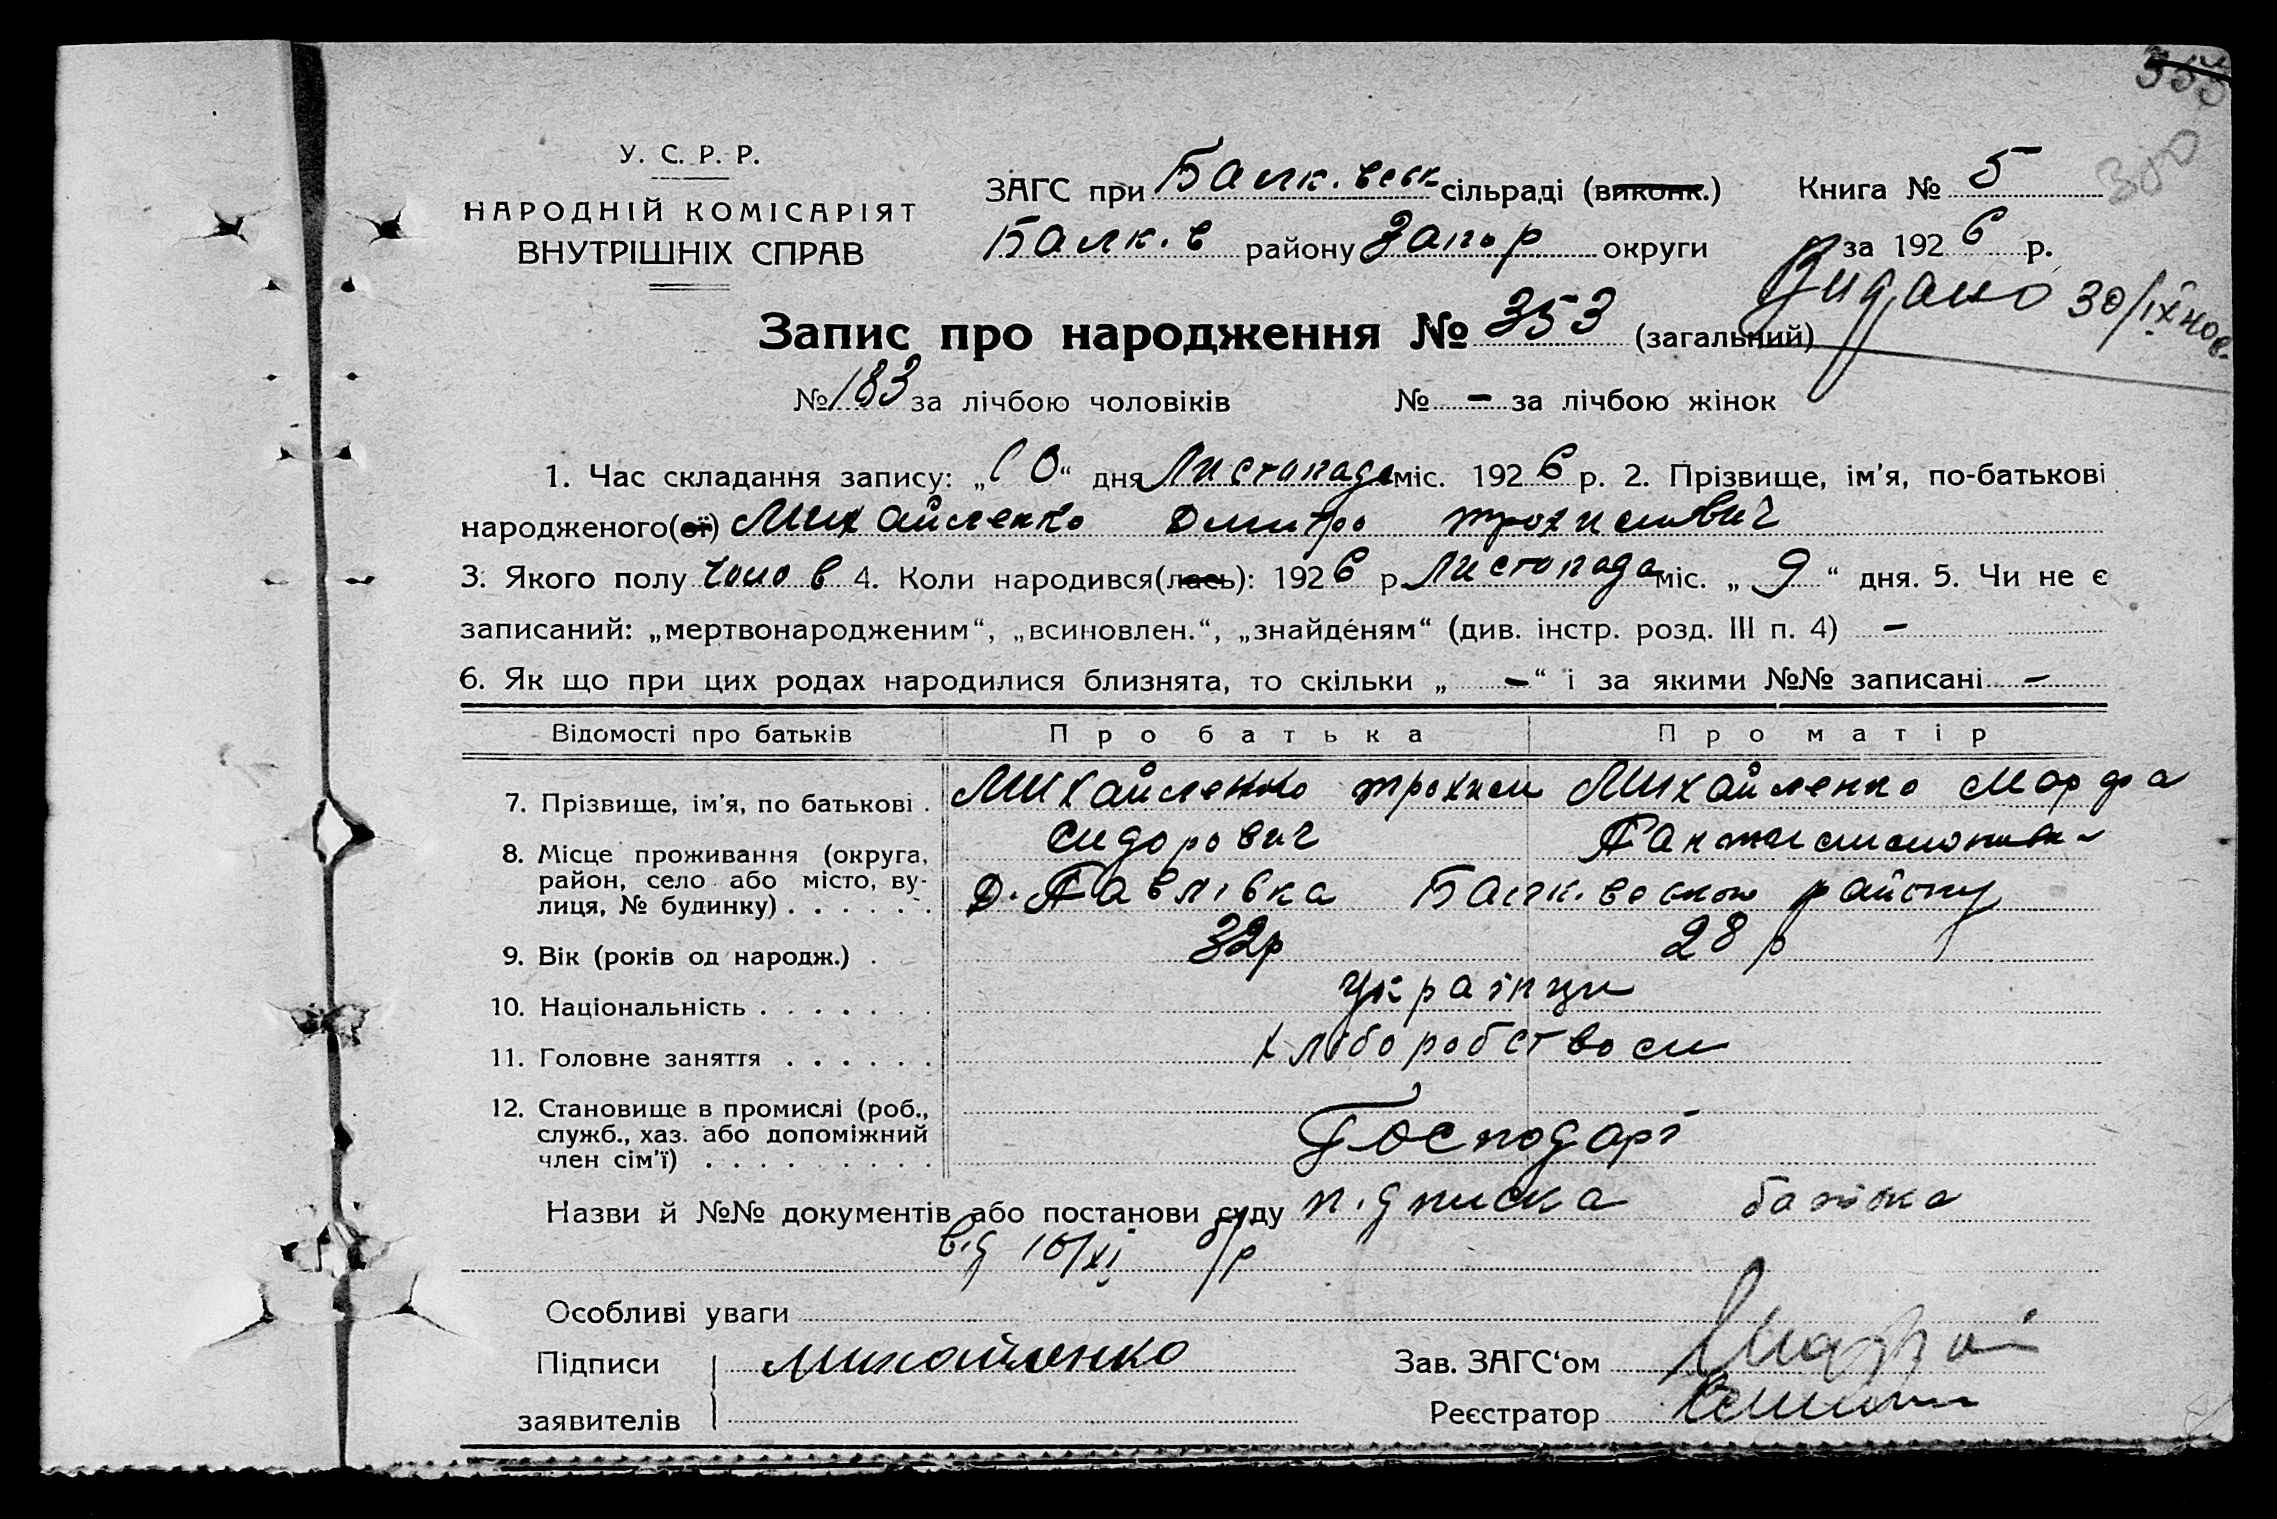 355
300
У. С. Р. Р.
НАРОДНІЙ КОМІСАРІЯТ
ВНУТРІШНІХ СПРАВ
ЗАГС при Балк. вськ сільраді (виконк.) Книга № 5
Балк. в району Запор округи за 1926 р.
Видано 30/IX
Запис про народження № 353 (загальний)
№ 183 за лічбою чоловіків № - за лічбою жінок
1. Час складання запису: „10“ дня Листопада міс. 1926 р. 2. Прізвище, ім'я, по-батькові
народженого(ої) Михайленко Дмитро Трохимович
3. Якого полу чолов 4. Коли народився(лась): 1926 р Листопада міс. „ 9 “ дня. 5. Чи не є
записаний: „мертвонародженим“, „всиновлен.“, „знайденям“ (див. інстр. розд. III п. 4) -
6. Як що при цих родах народилися близнята, то скільки „ - “ і за якими №№ записані -
Відомості про батьків Про батька Про матір
7. Прізвище, ім'я, по батькові . Михайленко Трохим Михайленко Марфа
Сидорович
8. Місце проживання (округа, район, село або місто, вулиця, № будинку) . . . . . . Д. Павлівка Балк. вського району
9. Вік (років од народж.) . 32р 28 р
10. Національність . . . . . . . Українци
11. Головне заняття . . . . . . хліборобством
12. Становище в промислі (роб.,
служб., хаз. або допоміжний
член сім'ї) . . . . . . . . . Господарі
Назви й №№ документів або постанови суду п.дписка батька
від 10/XI б/р
Особливі уваги
Підписи Михайленко Зав. ЗАГС'ом
заявителів Реєстратор